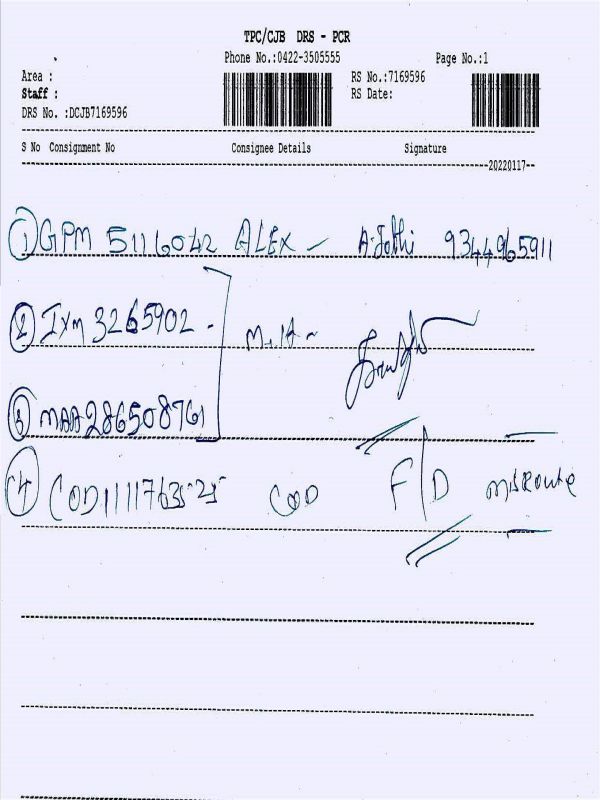 TPC/CJB DRS - PCR
Phone No.:0422-3505555 Page No.:1
Area : RS No.:7169596
Staff : RS Date:
DRS No. :DCJB7169596
S No Consignment No Consignee Details Signature
20220117
① GPM 5116042 ALEX - 9344965911
② IXM 3265902 -
③ MAA286508761
④ COD COD F/D misroute